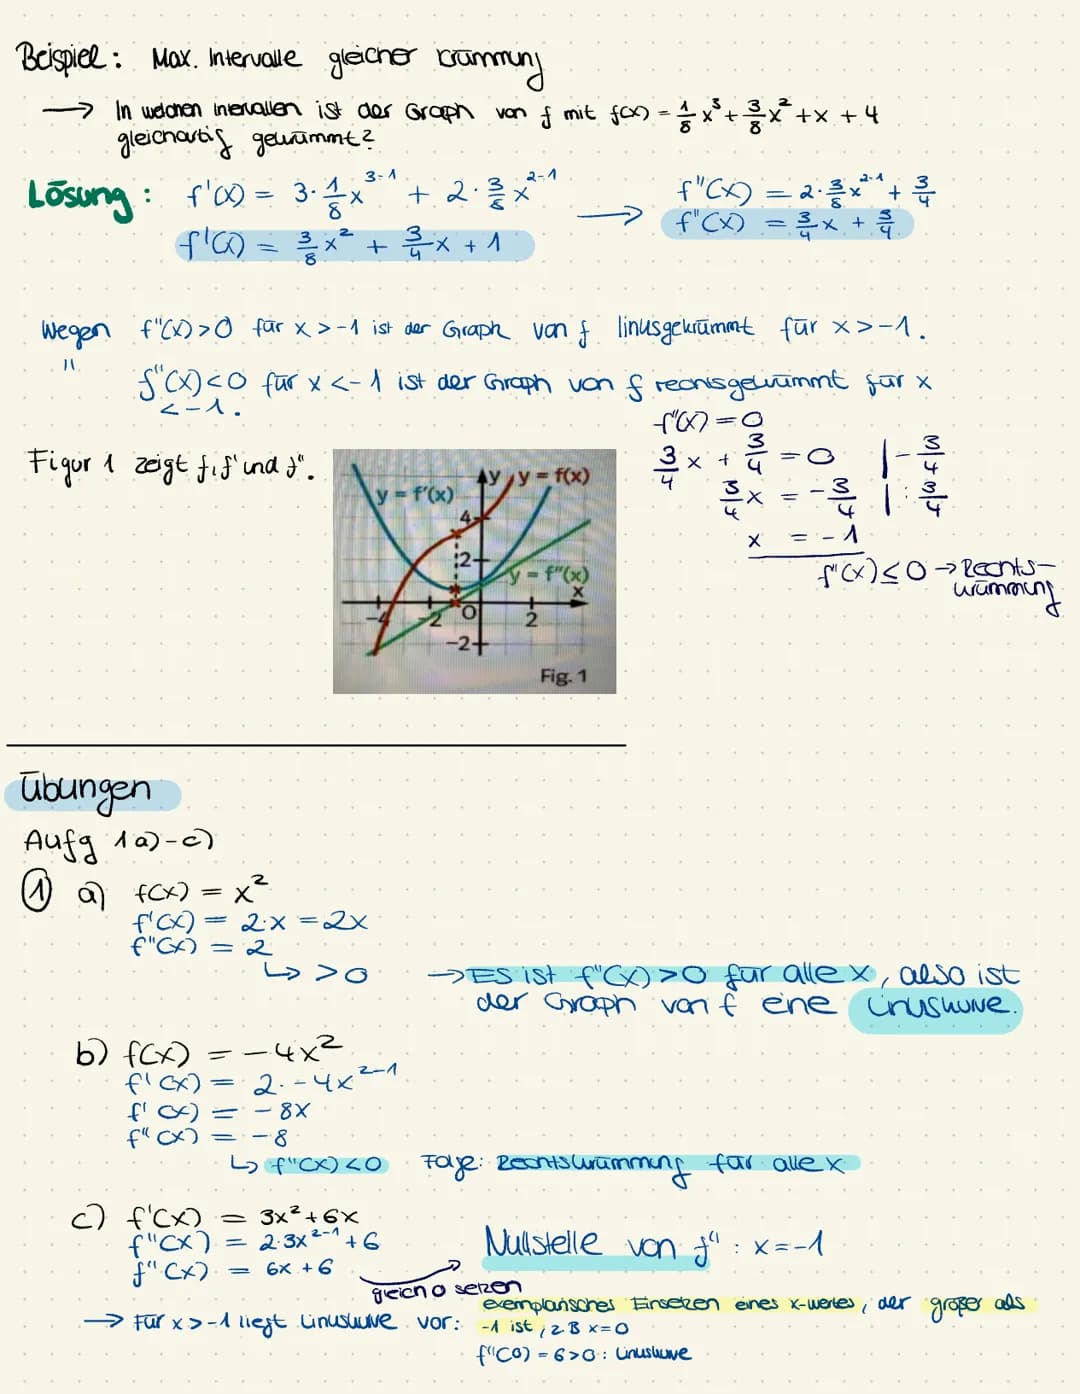 Beispiel: Max. Intervalle gleicher Krümmung
→ In welchen Inervallen ist der Graph von f mit f(x) = 1/8 x³ + 3/8 x² + x + 4
gleichartig gekrümmt?
Lösung: f'(x) = 3·1/8 x^(3-1) + 2·3/8 x^(2-1) → f''(x) = 2·3/8 x^(2-1) + 3/4
f'(x) = 3/8 x² + 3/4 x + 1 f''(x) = 3/4 x + 3/4
Wegen f''(x) > 0 für x > -1 ist der Graph von f linksgekrümmt für x > -1.
" f''(x) < 0 für x < -1 ist der Graph von f rechtsgekrümmt für x
< -1.
Figur 1 zeigt f, f' und f''.
y = f'(x)
y
y = f(x)
4
2
y = f''(x)
x
-4
-2
O
2
-2
Fig. 1
f''(x) = 0
3/4 x + 3/4 = 0 | - 3/4
3/4 x = -3/4 | : 3/4
x = -1
f''(x) ≤ 0 → Rechts-
krümmung
Übungen
Aufg 1a)-c)
① a) f(x) = x²
f'(x) = 2·x = 2x
f''(x) = 2
↳ > 0 → ES ist f''(x) > 0 für alle x, also ist
der Graph von f eine Linkskurve.
b) f(x) = -4x²
f'(x) = 2·-4x^(2-1)
f'(x) = -8x
f''(x) = -8
↳ f''(x) < 0 Folge: Rechtskrümmung für alle x
c) f'(x) = 3x² + 6x
f''(x) = 2·3x^(2-1) + 6 Nullstelle von f'': x = -1
f''(x) = 6x + 6
gleich 0 setzen
exemplarisches Einsetzen eines x-wertes, der größer als
→ Für x > -1 liegt Linkskurve vor: -1 ist, z B x = 0
f''(0) = 6 > 0: Linkskurve